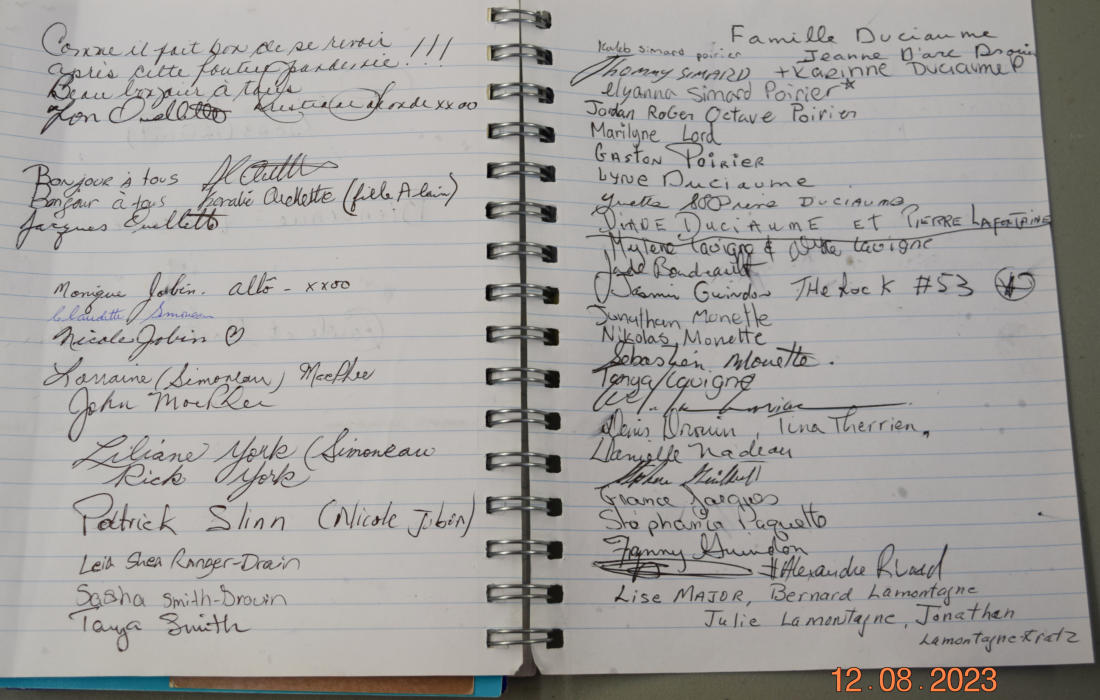 Comme il fait bon de se revoir
après cette foutue pandémie!!!
Beau bonjour à tous
Ouellette xxoo
Bonjour à tous
Bonjour à tous Ouellette (fille Alain)
Jacques Ouellette
Monique Jobin. alto - xxoo
Claudette Simoneau
Nicole Jobin ♡
Lorraine (Simoneau) MacPhee
John MacPhee
Liliane York (Simoneau
Rick York
Patrick Slinn (Nicole Jobin)
Leia Shea Ranger-Drain
Sasha Smith-Drouin
Tanya Smith
Famille Duciaume
Kaleb simard poirier Jeanne D'arc Drouin
Thommy SIMARD + Karinne Duciaume P
elyanna Simard Poirier*
Jordan Roger Octave Poirier
Marilyne Lord
GASTON POIRIER
Lyne Duciaume
Yvette DUCIAUME
DUCIAUME ET PIERRE LAFONTAINE
Mylène Lavigne & Lavigne
Jade Boudreault
Jasmin Guindon THE RocK #53
Jonathan Monette
Nikolas Monette
Sébastien Monette.
Tanya Lavigne
Denis Drouin, Tina Therrien.
Danielle Nadeau
France Jacques
Stéphanie Paquette
Fanny Guindon
Alexandre Ruard
Lise MAJOR, Bernard Lamontagne
Julie Lamontagne, Jonathan
Lamontagne-Kratz
12.08.2023